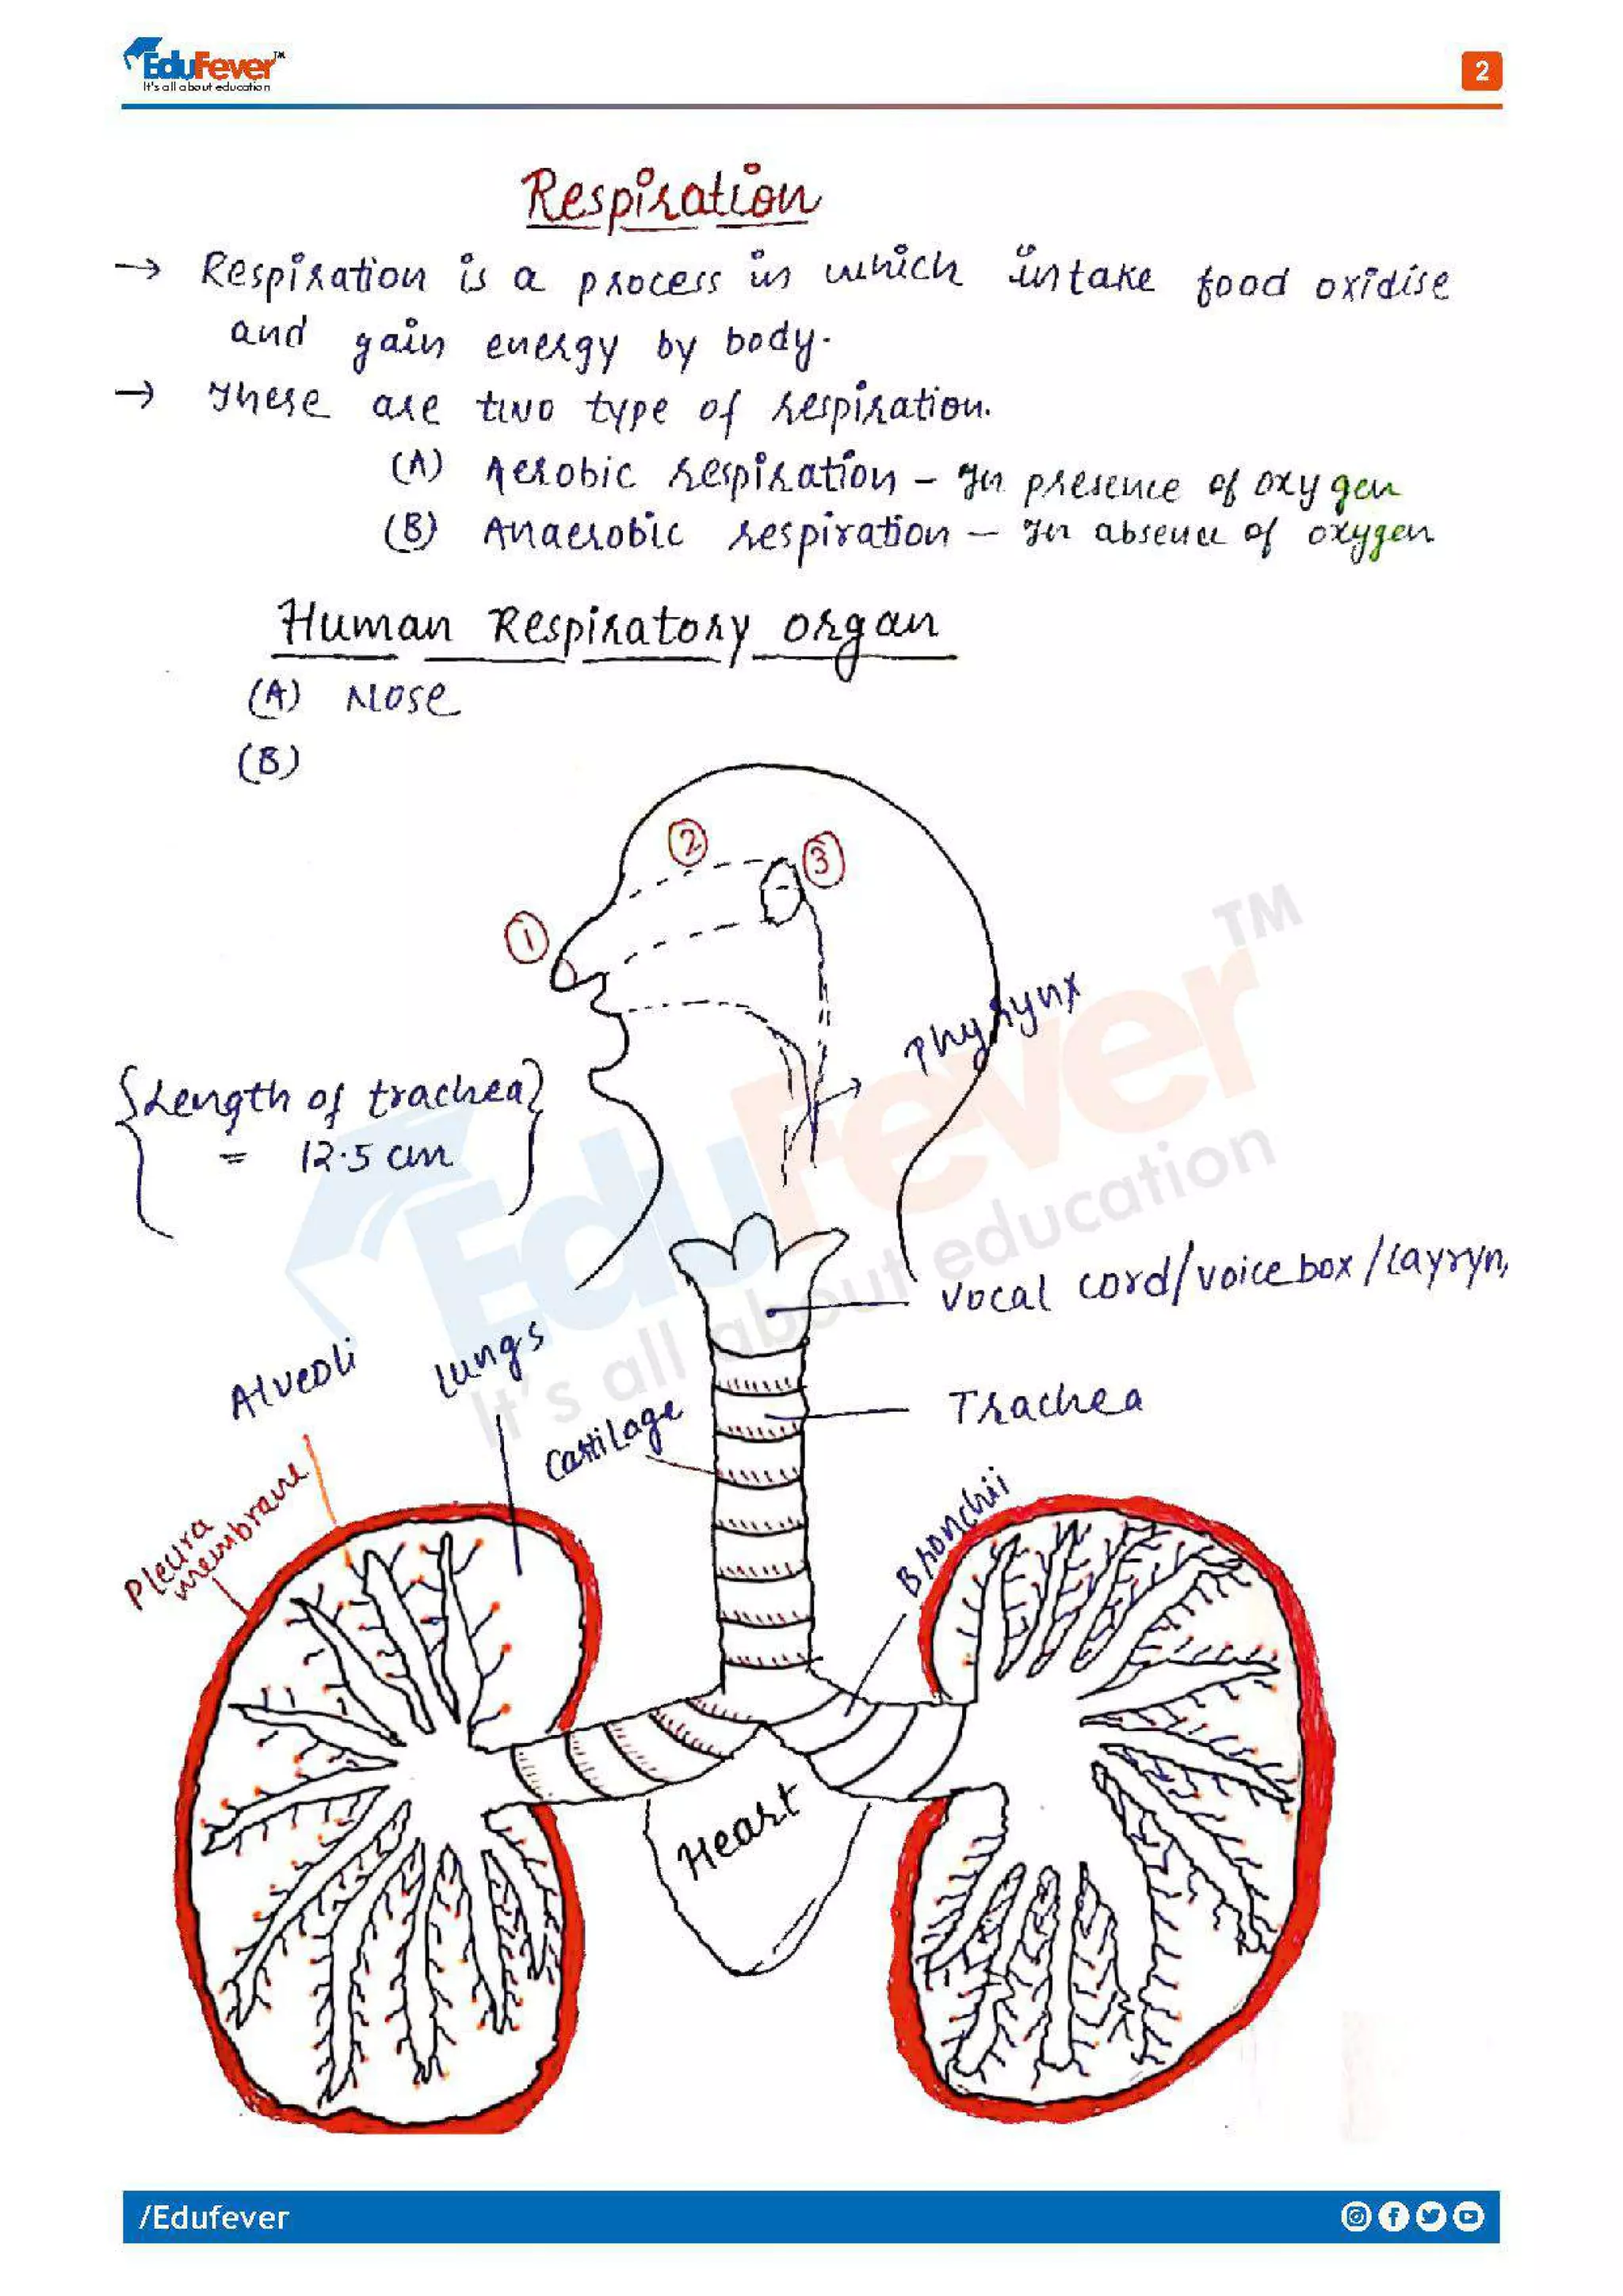 EduFever™
It's all about education
2
Respiration
→ Respiration is a process in which intake food oxidise
and gain energy by body.
→ There are two type of respiration.
(A) Aerobic respiration - In presence of oxygen
(B) Anaerobic respiration - In absence of oxygen
Human Respiratory organ
(A) Nose
(B)
2
3
1
Phyrynx
{Length of trachea}
= 12.5 cm
EduFever™
It's all about education
Vocal cord/voice box/Layryn,
Alveoli
Lungs
Cartilage
Trachea
Pleura
membrane
Bronchii
Heart
/Edufever